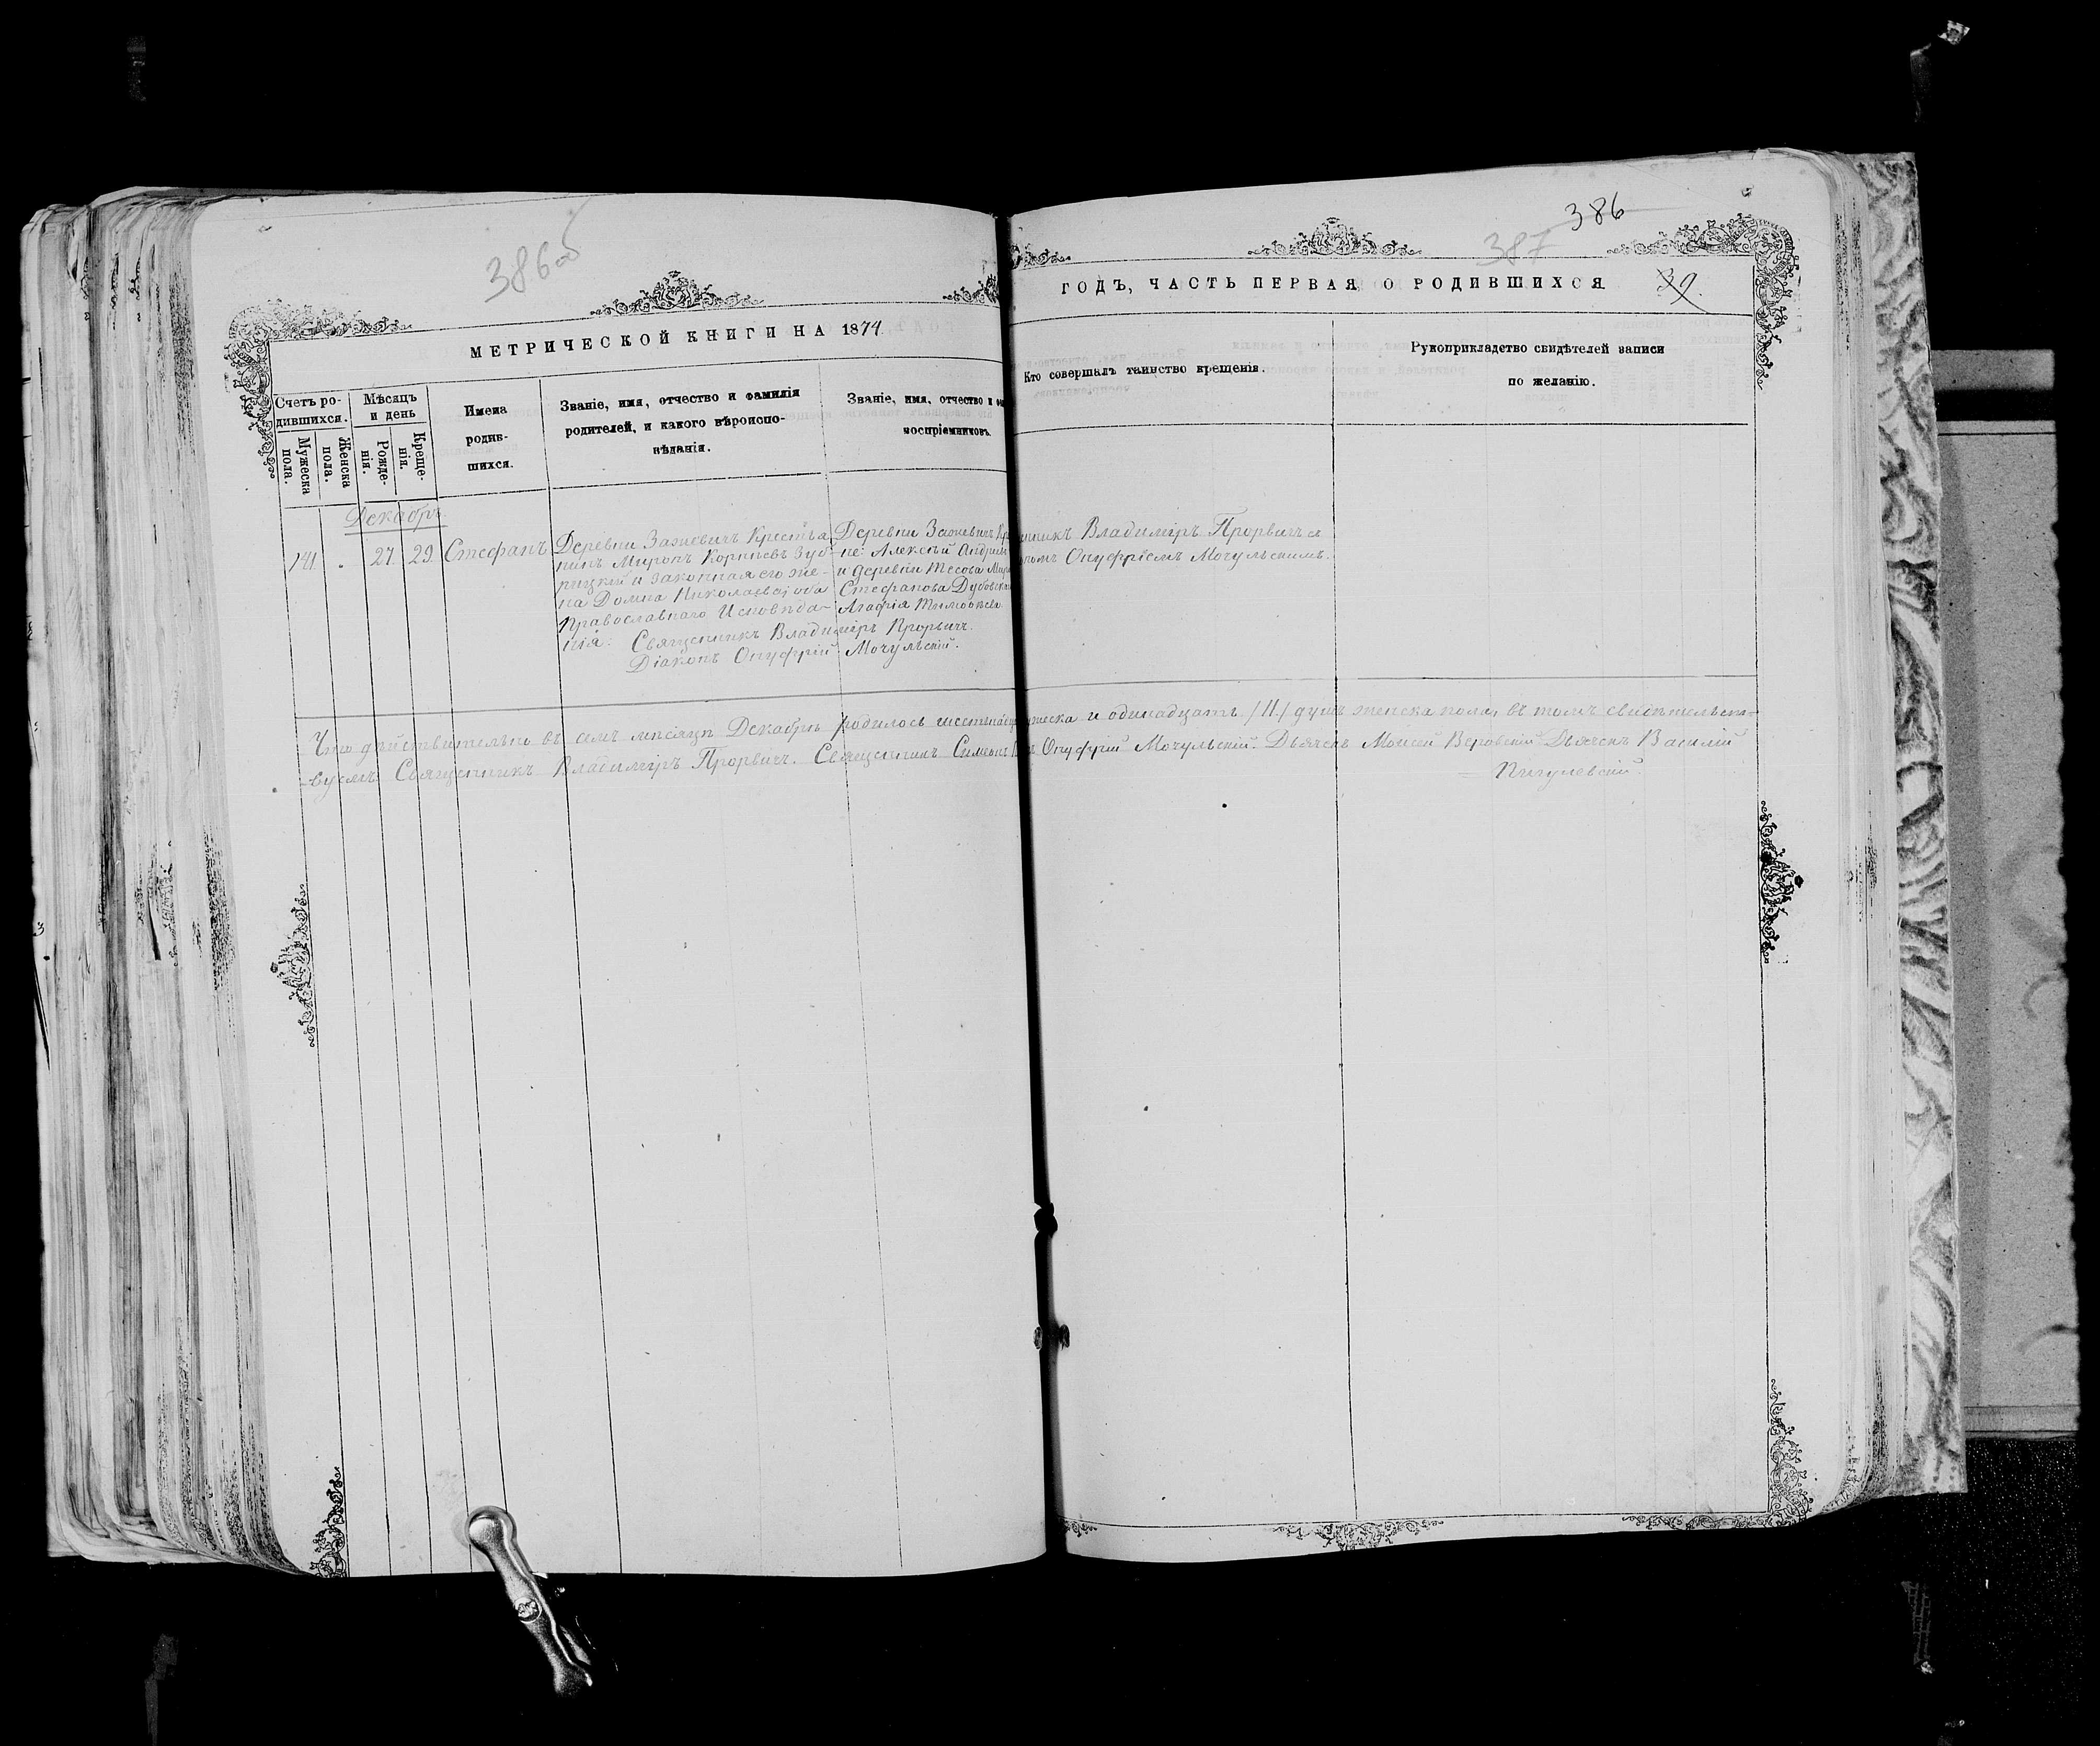 386об
386
387
39.
МЕТРИЧЕСКОЙ КНИГИ НА 1874
ГОДЪ, ЧАСТЬ ПЕРВАЯ, О РОДИВШИХСЯ
Счетъ ро-
дившихся.
Мужеска пола.
Женска пола.
Мѣсяцъ
и день
Рожде-
нія.
Креще-
нія.
Имена
родив-
шихся.
Званіе, имя, отчество и фамилія
родителей, и какого вѣроиспо-
вѣданія.
Званіе, имя, отчество и
воспріемниковъ.
Кто совершалъ таинство крещенія.
Рукоприкладство свидѣтелей записи
по желанію.
Декабрь
141. 27. 29. Стефанъ
Деревни Зажевичъ Крестья-
нинъ Миронъ Корнѣевъ Зуб-
рицкій и законная его же-
на Домна Николаева, оба
Православнаго Исповѣда-
нія.
Деревни Зажевичъ Кр
не: Алексѣй Андрі
и деревни Тесова
Стефанова Дубовска
Агафія Тимоѳѣева
Священникъ Владиміръ Прорвичъ.
Діаконъ Онуфрій Мочульскій.
нникъ Владиміръ Прорвичъ съ
номъ Онуфріемъ Мочульскимъ.
Что дѣйствительно въ семъ мѣсяцѣ Декабрѣ родилось мужеска и одинадцать /11./ душъ женска пола, въ томъ свидѣтельст-
-вуемъ Священникъ Владиміръ Прорвичъ. Священникъ Симеонъ Онуфрій Мочульскій. Дьячекъ Моисей Веровскій Дьячекъ Василій
Пигулевскій.